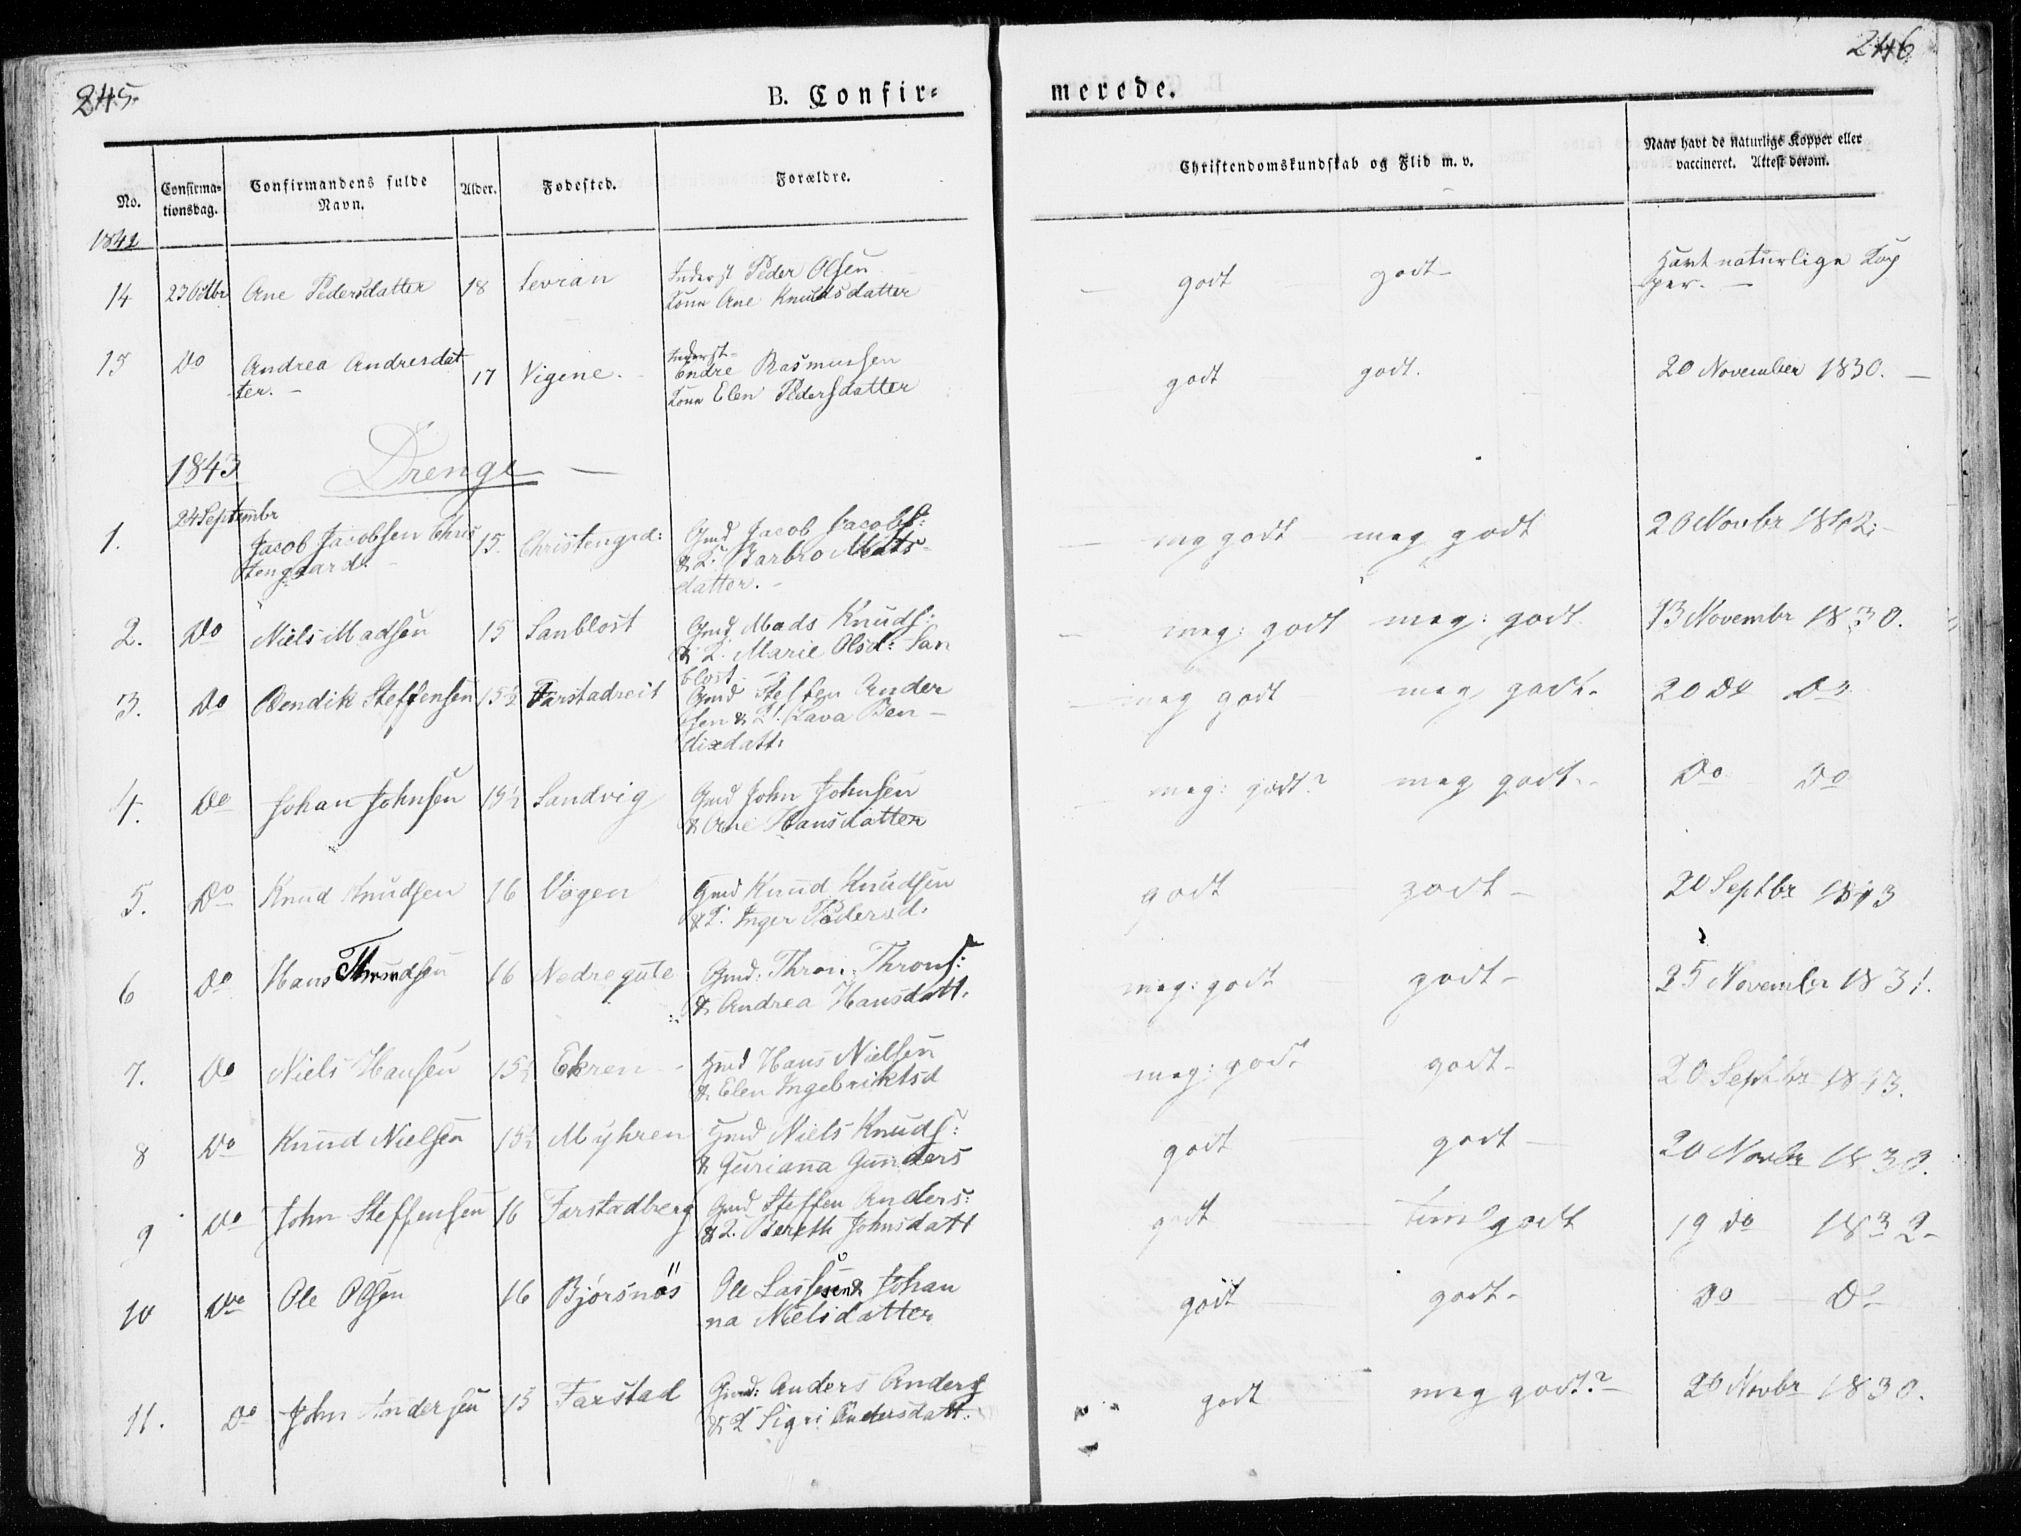 245.
246
B. Confir-
merede.
No.
Confirma-
tionsdag.
Confirmandens fulde
Navn.
Alder.
Fødested.
Forældre.
Christendomskundskab og Flid m. v.
Naar havt de naturlige Kopper eller
vaccineret. Attest derom.
14 23 Octbr Ane Pedersdatter 18 Levran Inderst Peder Olsen godt godt- Havt naturlige Kop
Kone Ane Knudsdatter per. -
15 Do Andrea Andresdat 17 Vigene. Inderst- godt godt. 20 November 1830. -
ter. - Endre Rasmussen
Kone Elen Pedersdatter
1843 Drenge -
24 Septembr
1. Jacob Jacobsen Chris 15. Christengrd: Gmd Jacob Jacobs: meg godt meg godt 20 Novbr
tengaard. & K. Barbro Mats-
datter. -
2. Do Niels Madsen 15 Sanblost Gmd Mads Knuds: meg: godt meg: godt. 13 Novembr 1830.
& K. Marie Olsd: San
blost.
3. Do Bendik Steffensen 15½ Farstadreit Gmd Steffen Ander meg godt meg godt. 20 Do Do
sen & K. Ben-
dixdatt:
4. Do Johan Johnsen 15½ Sandvig Gmd John Johnsen meg: godt? meg godt. Do Do
& Ane Hansdatter
5. Do Knud Knudsen 16 Vogen Gmd Knud Knudsen godt godt- 20 Septbr 1843
& K. Inger Pedersd.
6 Do Hans Thrundsen 16 Nedregute Gmd: Thron Throns: meg: godt godt- 25 November 1831.
& Andrea Hansdatt.
7. Do Niels Hansen 15½ Ekren - Gmd Hans Nielsen meg: godt godt- 20 Septbr 1843.
& Elen Ingebriktsd
8 Do Knud Nielsen 15½ Myhren Gmd Niels Knuds: godt godt- 20 Novbr 1830.
& Guriana Gunders
9 Do John Steffensen 16 Farstadberg Gmd Steffen Anders: godt godt 19 Do 1832-
& K. Bereth Johnsdatt
10 Do Ole Olsen 16 Bjørsnøs Ole Lassesen & Johan godt godt- Do Do
na Nielsdatter
11. Do John Andersen 15 Farstad Gmd: Anders Anders godt meg godt?- 20 Novbr 1830.
& K Sigri Andersdatt.